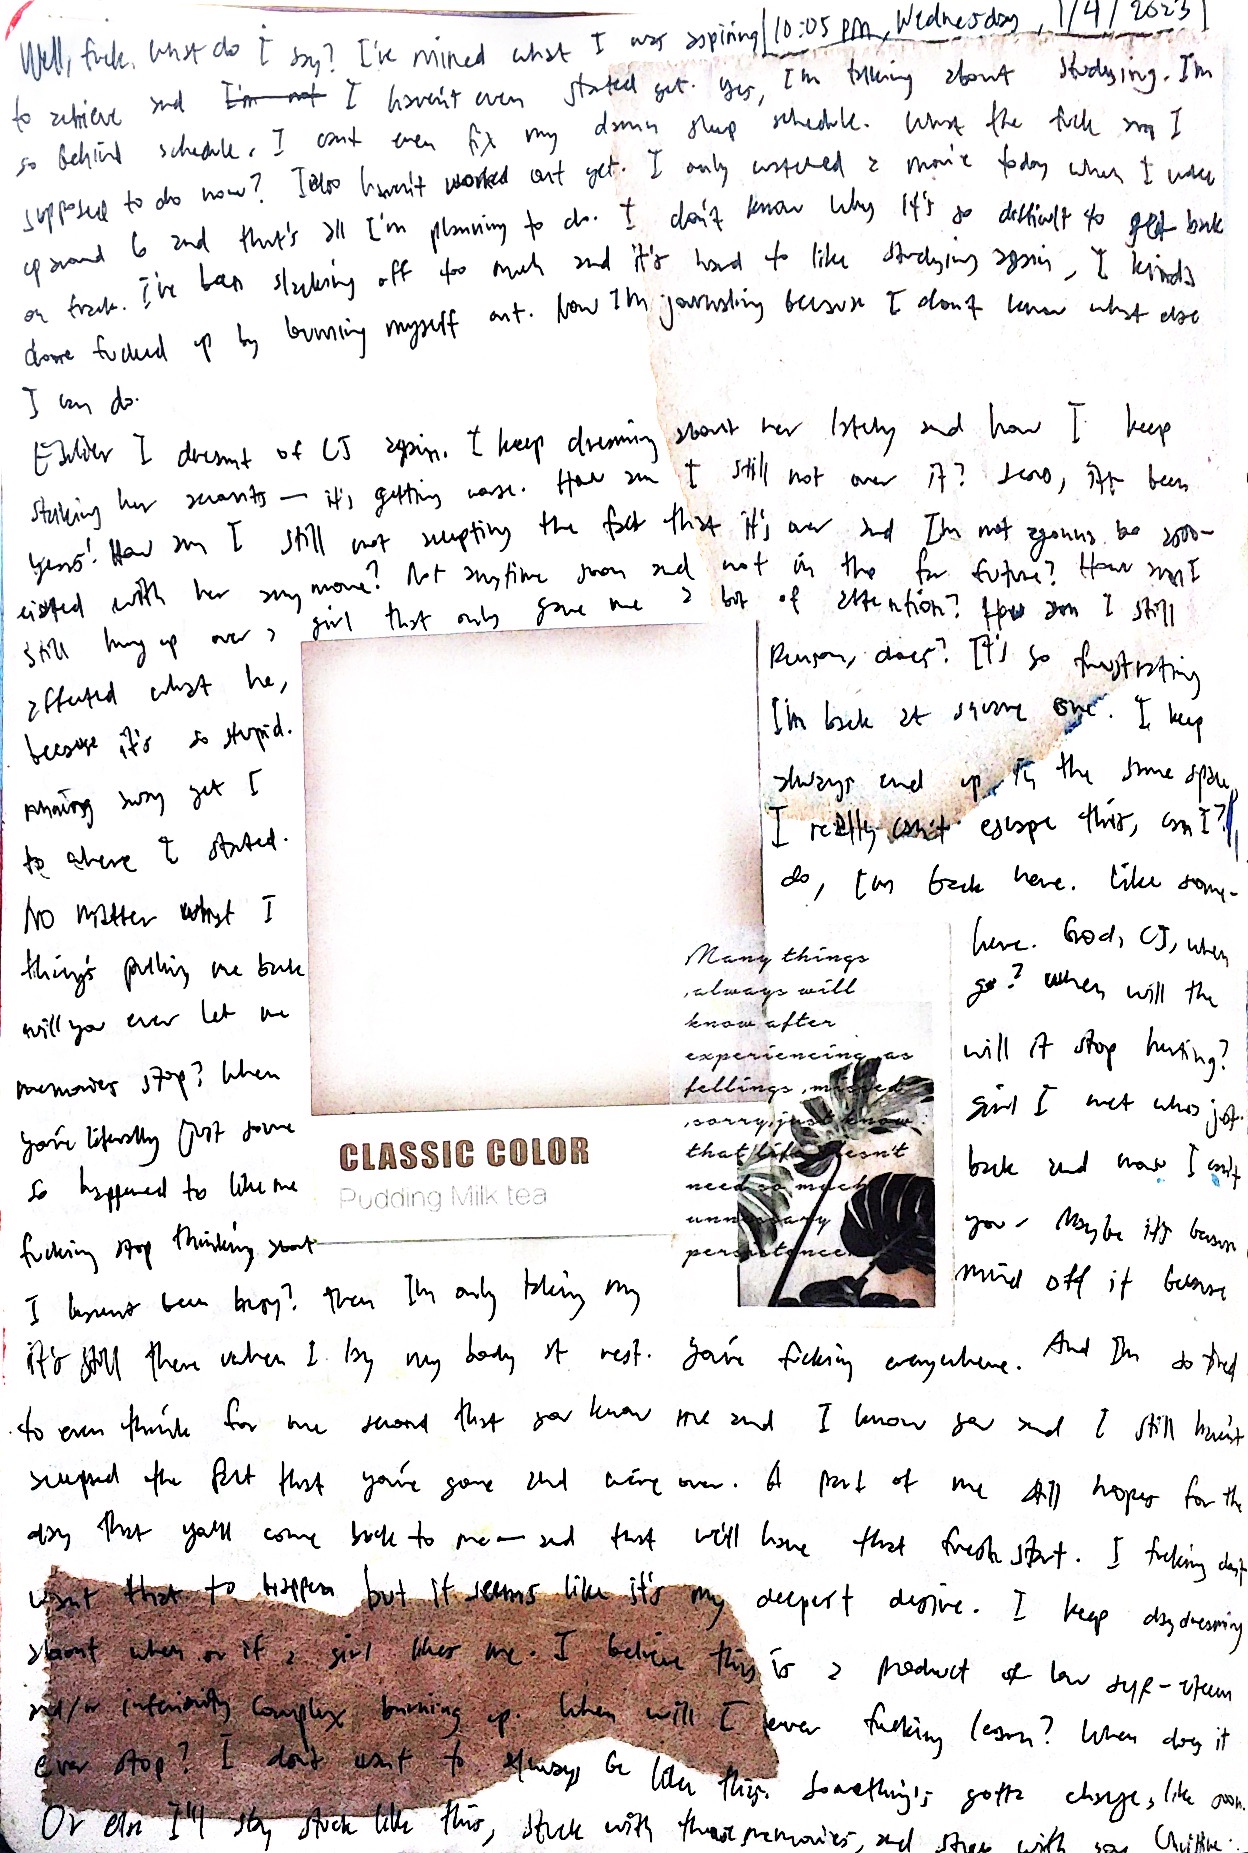 10:05 PM, Wednesday, 1/4/2023
Well, fuck. What do I say? I've ruined what I was aspiring
to achieve and I'm not I haven't even started yet. Yes, I'm talking about studying. I'm
so behind schedule. I can't even fix my damn sleep schedule. What the fuck am I
supposed to do now? I also haven't worked out yet. I only watched a movie today when I woke
up around 6 and that's all I'm planning to do. I don't know why it's so difficult to get back
on track. I've been slacking off too much and it's hard to like studying again, I kinda
done fucked up by burning myself out. Now I'm journaling because I don't know what else
I can do.
Earlier I dreamt of CJ again. I keep dreaming about her lately and how I keep
stalking her accounts — it's getting worse. How am I still not over it? been
years! How am I still not accepting the fact that it's over and I'm not gonna be asso-
ciated with her anymore? Not anytime soon and not in the far future? How am I
still hung up over a girl that only gave me a bit of attention? How am I still
affected what he, Renson, does? It's so frustrating
because it's so stupid. I'm back at square one. I keep
running away yet I always end up in the same space,
to where I started. I really can't escape this, can I?
No matter what I do, I'm back here. Like some-
thing's pulling me back here. God, CJ, when
will you ever let me go? When will the
memories stop? When will it stop hurting?
You're literally just some girl I met who just
so happened to like me back and now I can't
fucking stop thinking about you. Maybe it's because
I haven't been busy? Then I'm only taking my mind off it because
it's still there when I lay my body at rest. You're fucking everywhere. And I'm so tired
to even think for one second that you know me and I know you and I still haven't
accepted the fact that you're gone and we're over. A part of me still hopes for the
day that you'll come back to me — and that we'll have that fresh start. I fucking don't
want that to happen but it seems like it's my deepest desire. I keep daydreaming
about when or if a girl likes me. I believe this is a product of low self-esteem
and/or inferiority complex burning up. When will I ever fucking learn? When does it
ever stop? I don't want to always be like this. Something's gotta change, like soon.
Or else I'll stay stuck like this, stuck with those memories, and stuck with you
Many things
,always will
know after
experiencing,as
fellings ,missed
,sorry,just know
that life doesn't
need so much
unnessary
persistence
CLASSIC COLOR
Pudding Milk tea